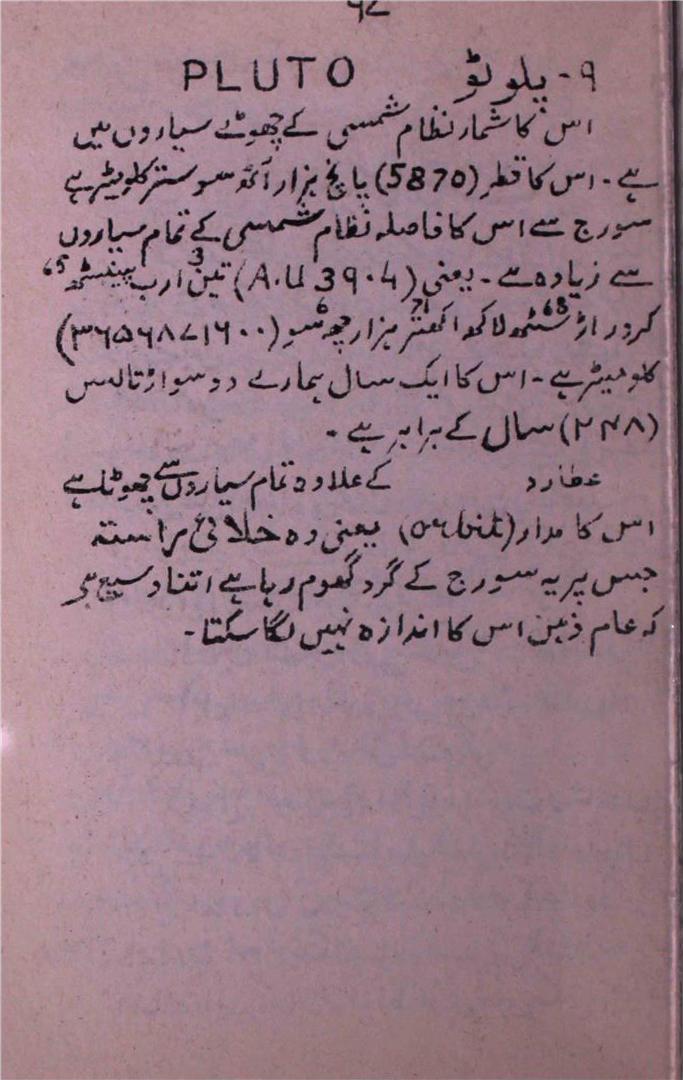 ۹- پلوٹو PLUTO
اس کا شمار نظام شمسی کے چھوٹے سیاروں میں
ہے۔ اس کا قطر (5870) پانچ ہزار آٹھ سو ستر کلومیٹر ہے
سورج سے اس کا فاصلہ نظام شمسی کے تمام سیاروں
سے زیادہ ہے۔ یعنی (A.U 39.4) تین 3 ارب پینسٹھ 65
کروڑ اڑسٹھ 68 لاکھ اکھتر 71 ہزار چھ 6 سو (۳۶۵۶۸۷۱۶۰۰)
کلومیٹر ہے۔ اس کا ایک سال ہمارے دو سو اڑتالیس
(۲۴۸) سال کے برابر ہے۔
عطارد کے علاوہ تمام سیاروں سے چھوٹا ہے
اس کا مدار (orbit) یعنی وہ خلائی راستہ
جس پر یہ سورج کے گرد گھوم رہا ہے اتنا وسیع ہے
کہ عام ذہن اس کا اندازہ نہیں لگا سکتا۔